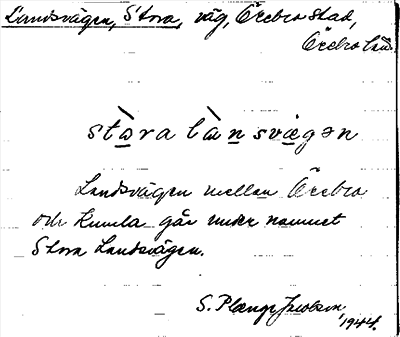 Landsvägen, Stora, väg, Örebro stad,
Örebro län.
stò̱ra là̱ṉsvæ̱gən
Landsvägen mellan Örebro
och Kumla går under namnet
Stora Landsvägen.
S. Plænge Jacobson
1944.